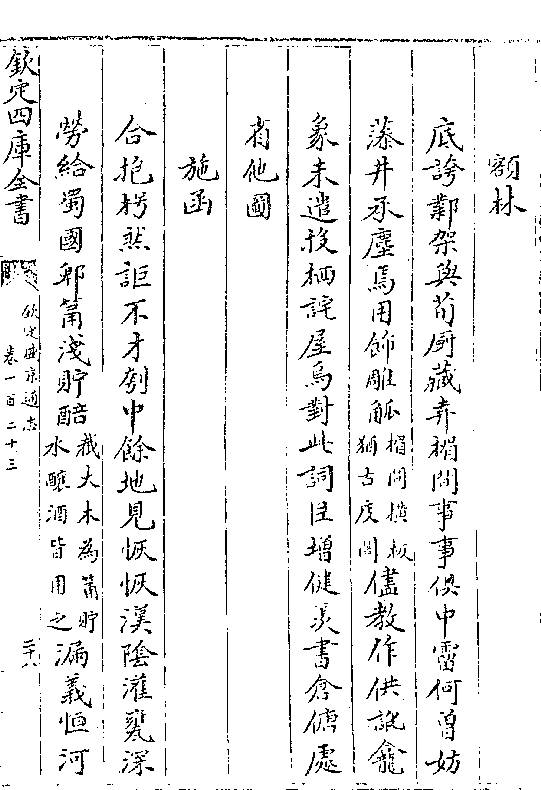 額林
底誇鄴架與荀厨藏弆楣間事事俱中霤何曽妨
藻井承塵焉用飾雕觚楣間横板猶古庋閣儘教作供訛龕
象未遣投栖詫屋烏對此詞臣増健羨書倉傭處
有他圖
施函
合抱枵然詎不才刳中餘地見恢恢漢陰灌甕深
勞給蜀國郫筩淺貯醅截大木為筩貯水釀酒皆用之漏義恒河
欽定四庫全書
欽定盛京通志
卷一百二十三
二十六